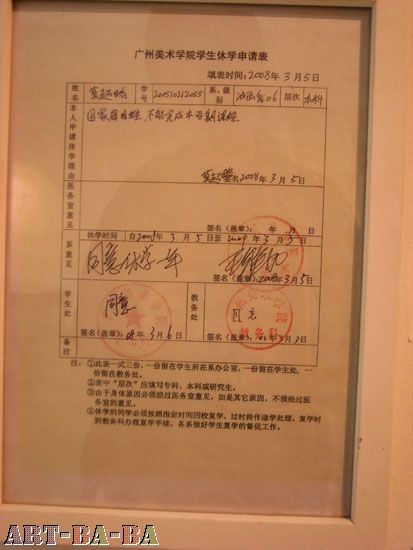 广州美术学院学生休学申请表
填表时间：2008年3月5日
姓名 学号 系、级别 油画系06 层次 本科
本人申请休学理由
因家庭困难，不能完成本学期课程
签名 2008年3月5日
医务室意见
签名（盖章）： 年 月 日
系意见
休学时间 自2008年3月5日至2009年3月5日
同意休学一年
签名（盖章）：2008年3月5日
学生处 同意 教务处 同意
签名（盖章）：08年3月6日 签名（盖章）： 年3月7日
教务科
备注
注：①此表一式三份，一份留在学生所在系办公室，一份留在学生处，一
份留在教务处。
②表中“层次”应填写专科、本科或研究生。
③由于身体原因必须经过医务室意见，如是其它原因，不须经过医
务室的意见。
④休学的同学必须按照指定时间回校复学，过时将作退学处理，复学时
到教务科办理复学手续。各系做好学生复学的督促工作。
ART-BA-BA